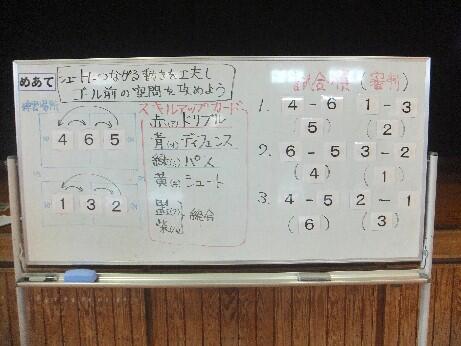 めあて
シュートにつながる動きを工夫し
ゴール前の空間を攻めよう
練習場所
4 6 5
1 3 2
スキルアップカード
ドリブル
ディフェンス
パス
シュート
総合
試合の順 (審判)
1. 4 - 6 1 - 3
(5) (2)
2. 6 - 5 3 - 2
(4) (1)
3. 4 - 5 2 - 1
(6) (3)